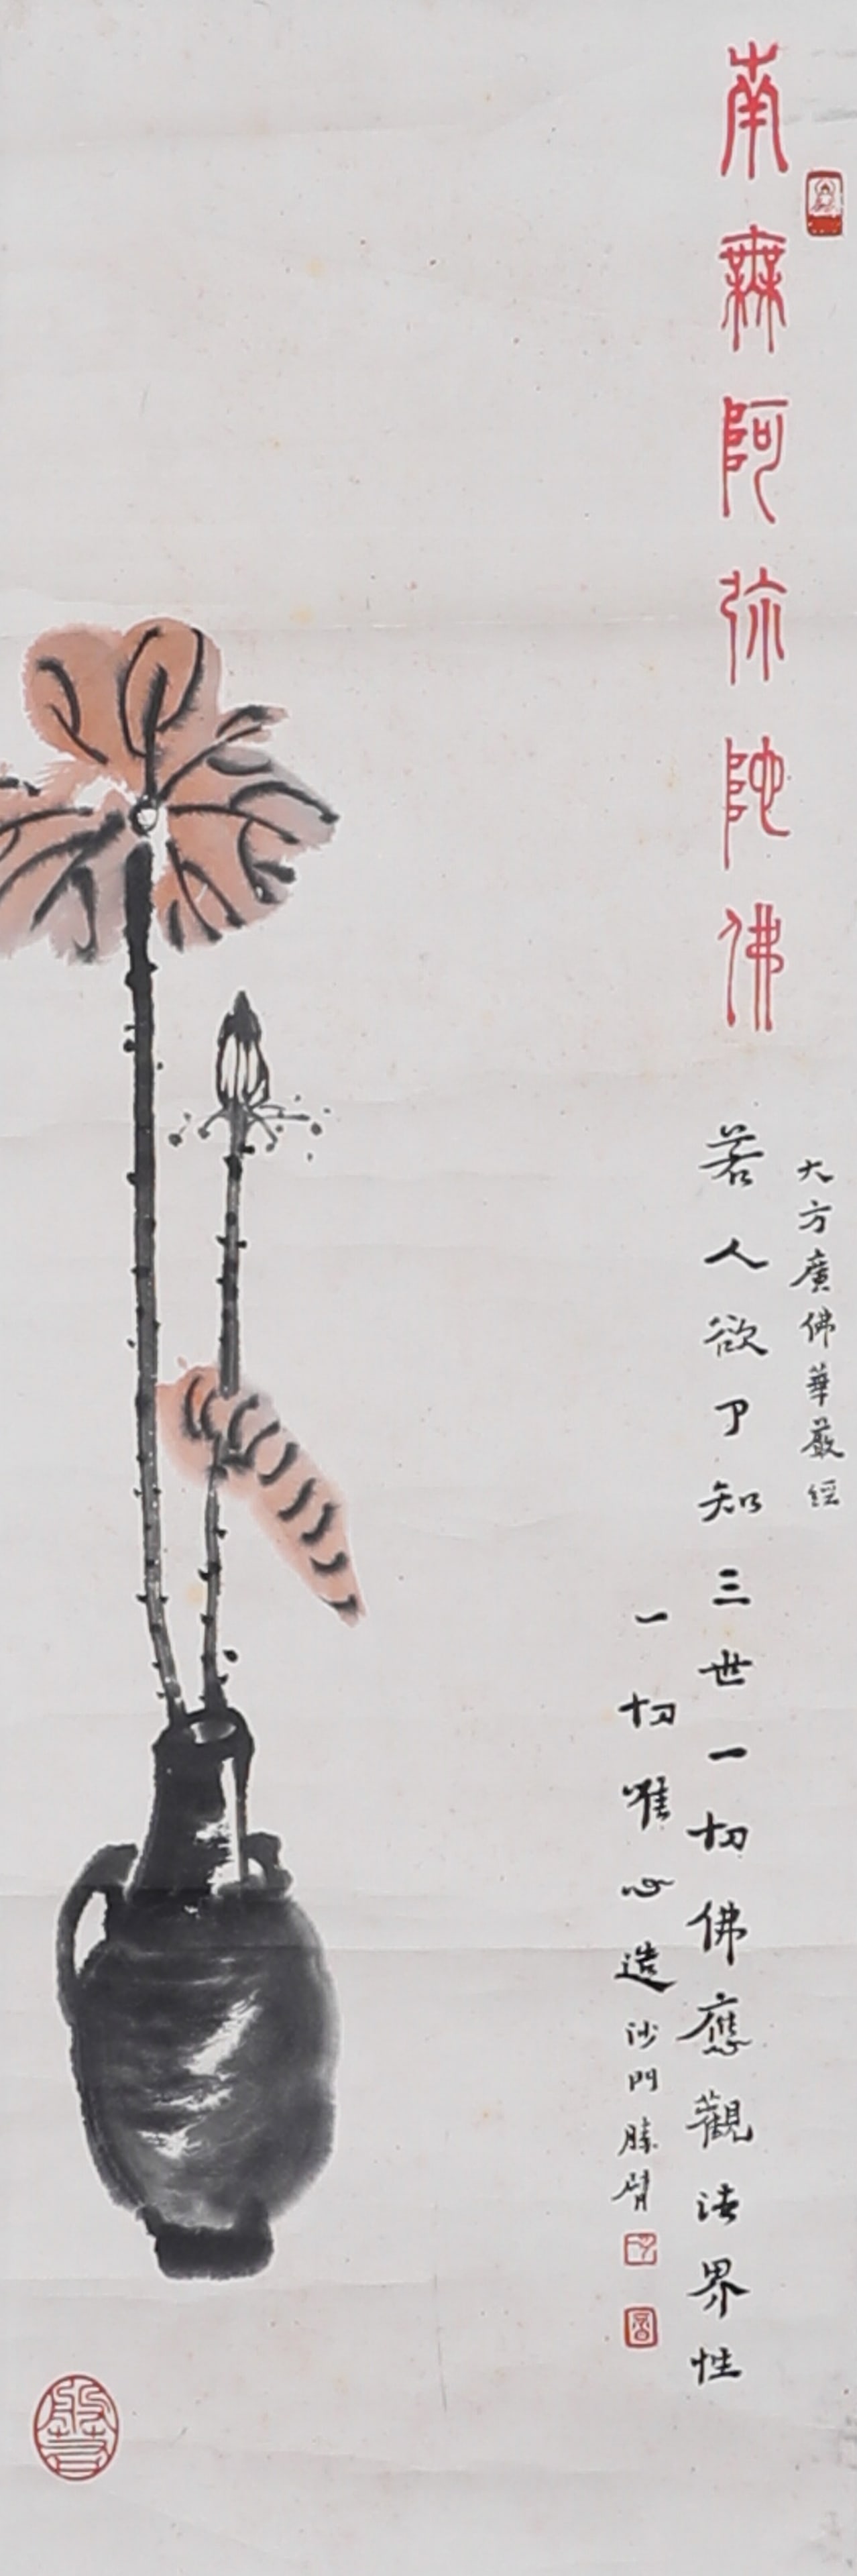 南無阿弥陀佛
大方廣佛華嚴經
若人欲了知三世一切佛應觀法界性
一切唯心造沙門勝臂